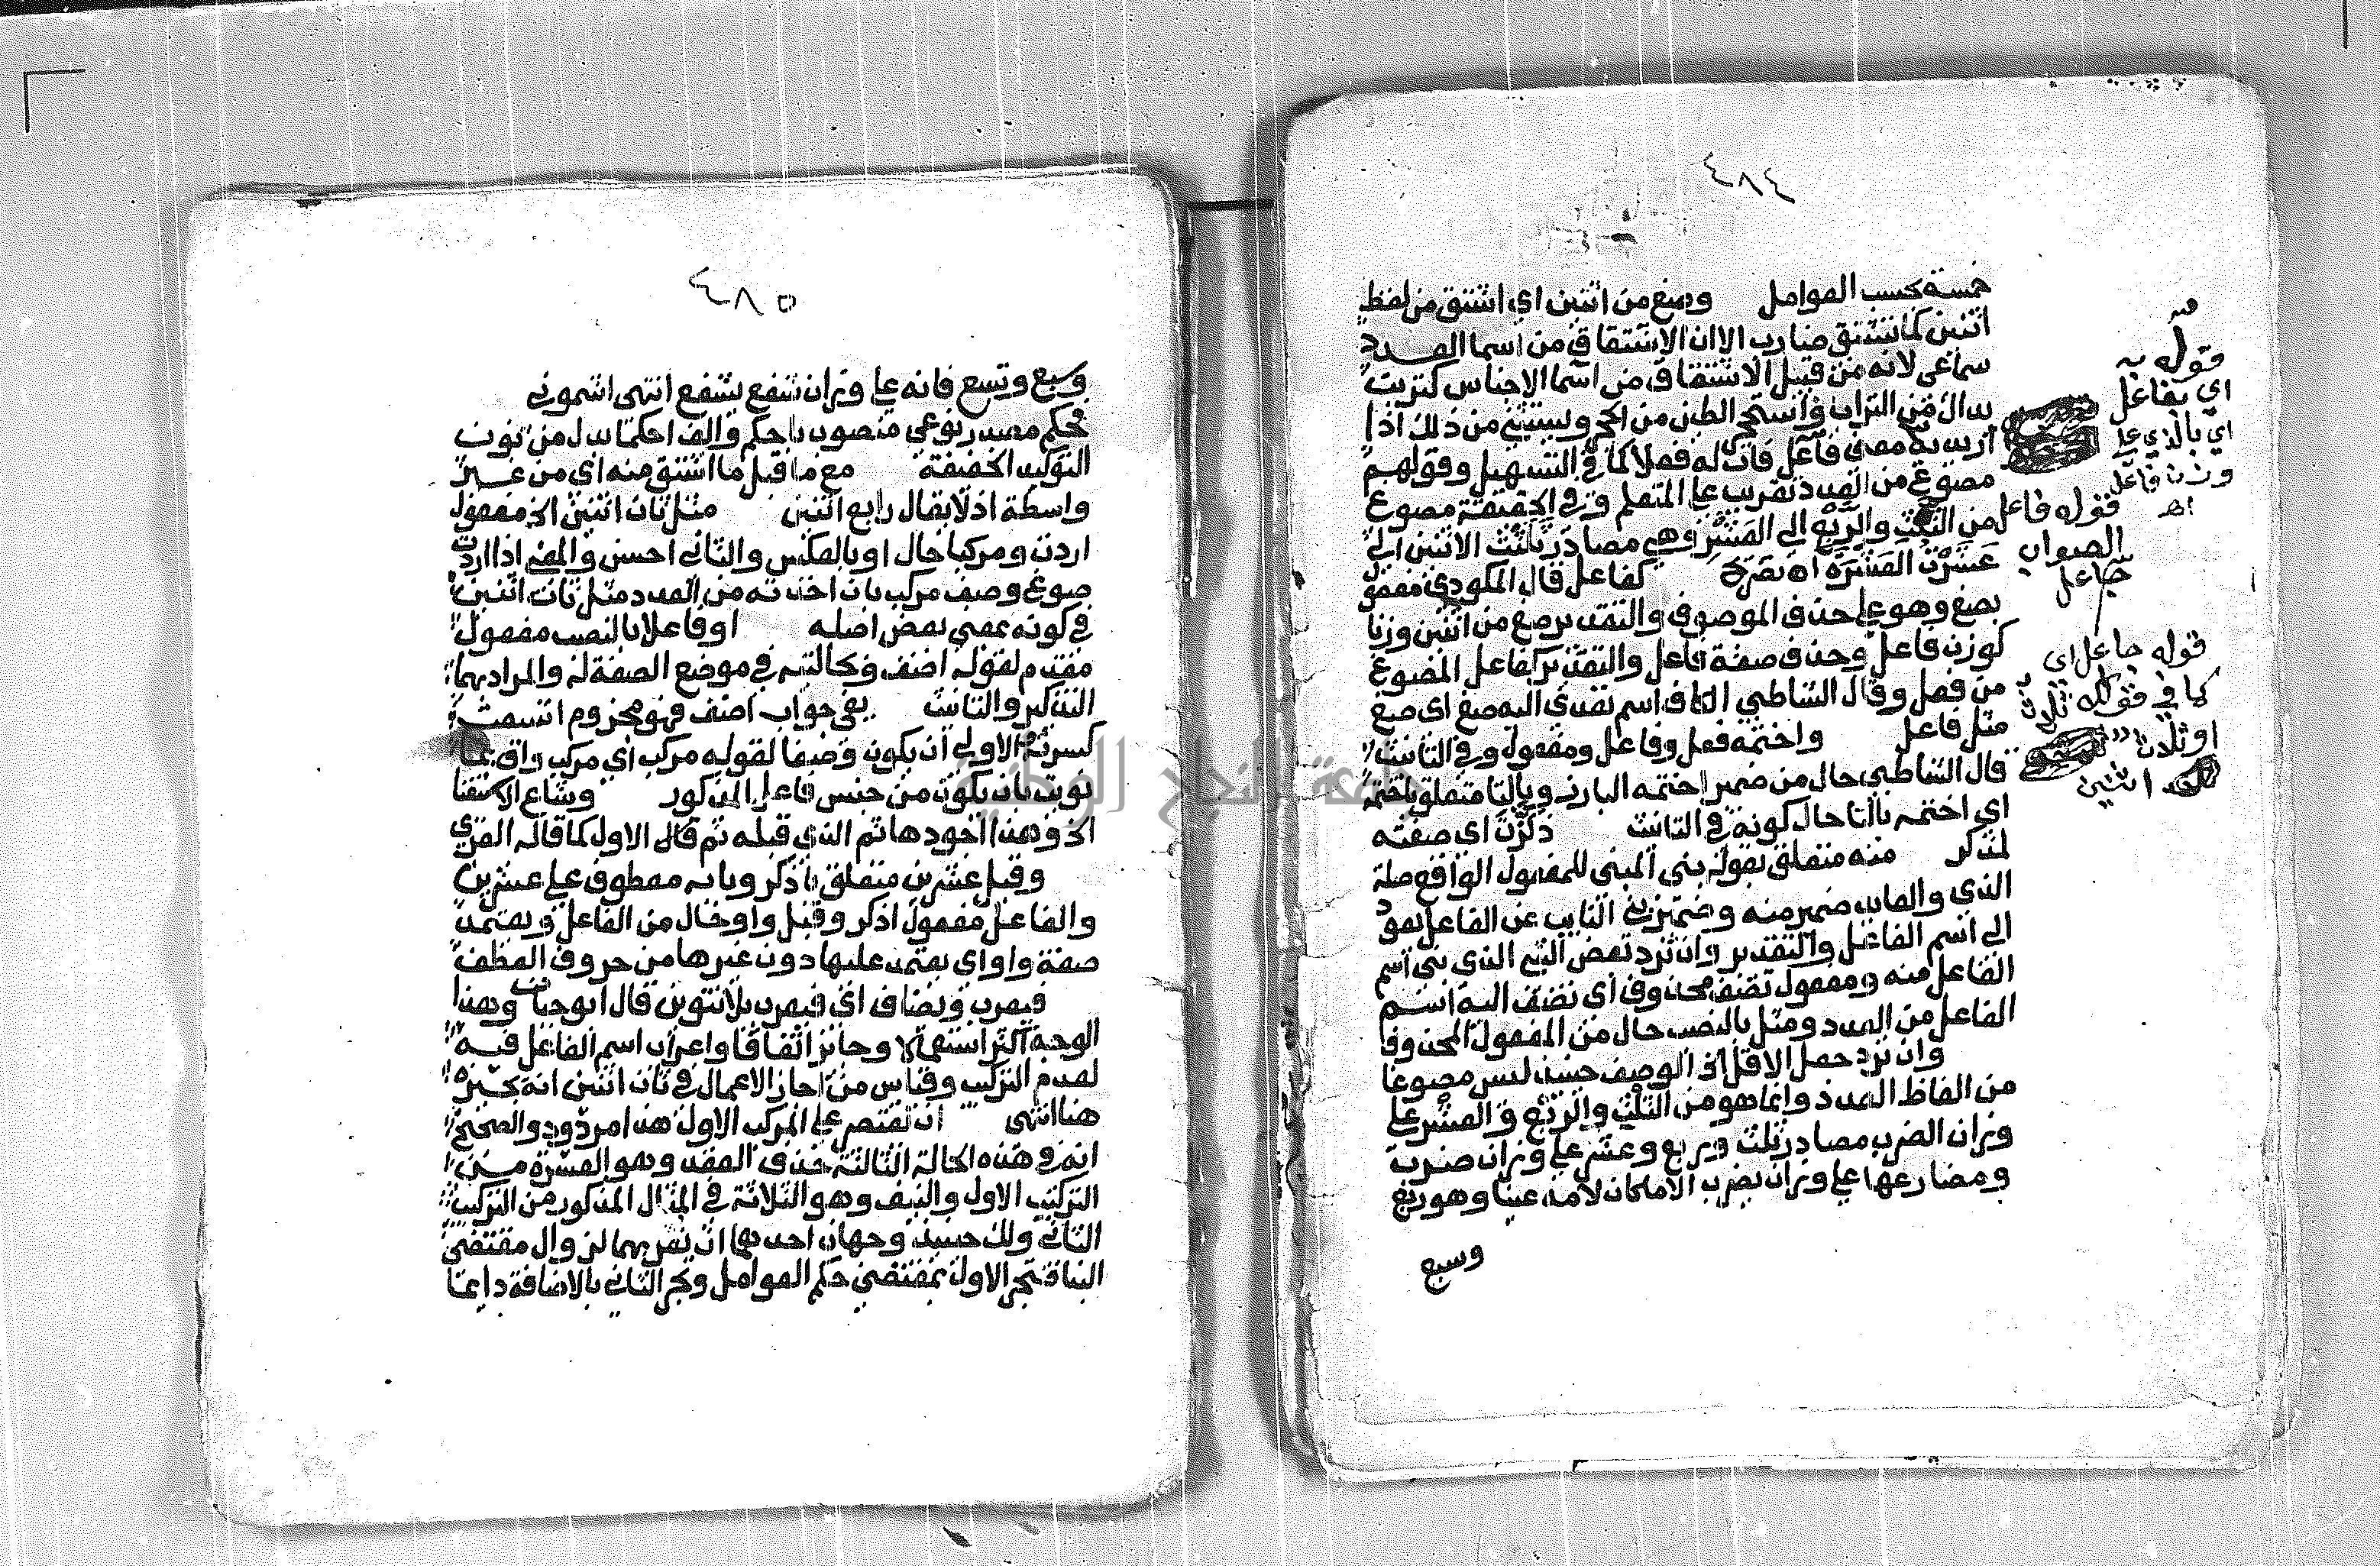 ٤٨٤
خمسة بحسب العوامل وصغ من اثنين اي اشتق من لفظ
اثنين كما تشتق ضارب الا ان الاشتقاق من اسما العدد
سماعي لانه من قبيل الاشتقاق من اسما الاجناس كتربت
يداك من التراب واستحجر الطين من الحجر ويستثنى من ذلك اذا
اريد به معنى فاعل فان له فعلا كما في التسهيل وقولهم
مصوغ من العدد تقريب على المتعلم وفي الحقيقة مصوغ
من الثلث والربع الى العشر وهي مصادر ثلثت الاثنين الى
عشرت العشرة اه تصريح كفاعل قال المكودي مفعول
بصغ وهو على حذف الموصوف والتقدير صغ من اثنين وزنا
كوزن فاعل وحذف صفة فاعل والتقدير كفاعل المصوغ
من فعل وقال الشاطبي الكاف اسم تعدى اليه صغ اي صغ
مثل فاعل واختمه فعل وفاعل ومفعول وفي التانيث
قال الشاطبي حال من ضمير اختمه البارز وبالتا متعلق باختمه
اي اختمه بالتا حال كونه في التانيث ذكرت اي صفته
لمذكر منه متعلق بقوله بني المبني للمفعول الواقع صلة
الذي والعايد ضمير منه وضمير بني النايب عن الفاعل يعود
الى اسم الفاعل والتقدير وان ترد بعض الشي الذي بني اسم
الفاعل منه ومفعول تضف محذوف اي تضف اليه اسم
الفاعل من العدد ومثل بالنصب حال من المفعول المحذوف
وان ترد جعل الاقل الخ الوصف حينئذ ليس مصوغا
من الفاظ العدد وانما هو من الثلث والربع والعشر على
وزان الضرب مصادر ثلث وربع وعشر على وزان ضرب
ومضارعها على وزان يضرب الا ما كان لامه عينا وهو ربع
وسبع
قوله به
اي بفاعل
اي بالذي على
وزن فاعل
اه
قوله فاعل
الصواب
جاعل
قوله جاعل اي
كما في قولك ثلاث
او ثلاث
اثنين
٤٨٥
وسبع وتسع فانه على وزان شفع يشفع انتهى اشموني
بحكم مصدر نوعي منصوب باحكم والف احكما بدل من نون
التوكيد الخفيفة مع ما قبل ما اشتق منه اي من غير
واسطة اذ لا يقال رابع اثنين مثل ثان اثنين الخ مفعول
اردت ومركبا حال او بالعكس والثاني احسن والمعنى اذا اردت
صوغ وصف مركب بان اخذته من العدد مثل ثان اثنين
في كونه بمعنى بعض اصله او فاعلا بالنصب مفعول
مقدم لقوله اضف وبحالتيه في موضع الصفة له والمراد بهما
التذكير والتانيث يفي جواب اضف فهو مجزوم اشبعت
كسرته الاولى ان يكون وصفا لقوله مركب اي مركب واف بما
نويت بان يكون من جنس فاعل المذكور وشاع الاستغنا
الخ وهذا اجودها ثم الذي قبله ثم قال الاول كما قاله الغزي
وقبل عشرين متعلق باذكر وبابه معطوف على عشرين
والفاعل مفعول اذكر وقبل واو حال من الفاعل ويعتمد
صفة واو اي يعتمد عليها دون غيرها من حروف العطف
فيعرب ويضاف اي فيعرب بلا تنوين قال ابو حيان وهذا
الوجه اكثر استعمالا وجائز اتفاقا واعراب اسم الفاعل فيه
لعدم التركيب وقياس من اجاز الاعمال في ثان اثنين انه يجيزه
هنا انتهى ان تقتصر على المركب الاول هذا مردود والصحيح
انه في هذه الحالة الثالثة حذف العقد وهو العشرة من
التركيب الاول والنيف وهو الثلاثة في المثال المذكور من التركيب
الثاني ولك حينئذ وجهان احدهما ان تعربهما لزوال مقتضى
البناء فتجر الاول بمقتضى حكم العوامل وتجر الثاني بالاضافة دايما
جامعة النجاح الوطنية